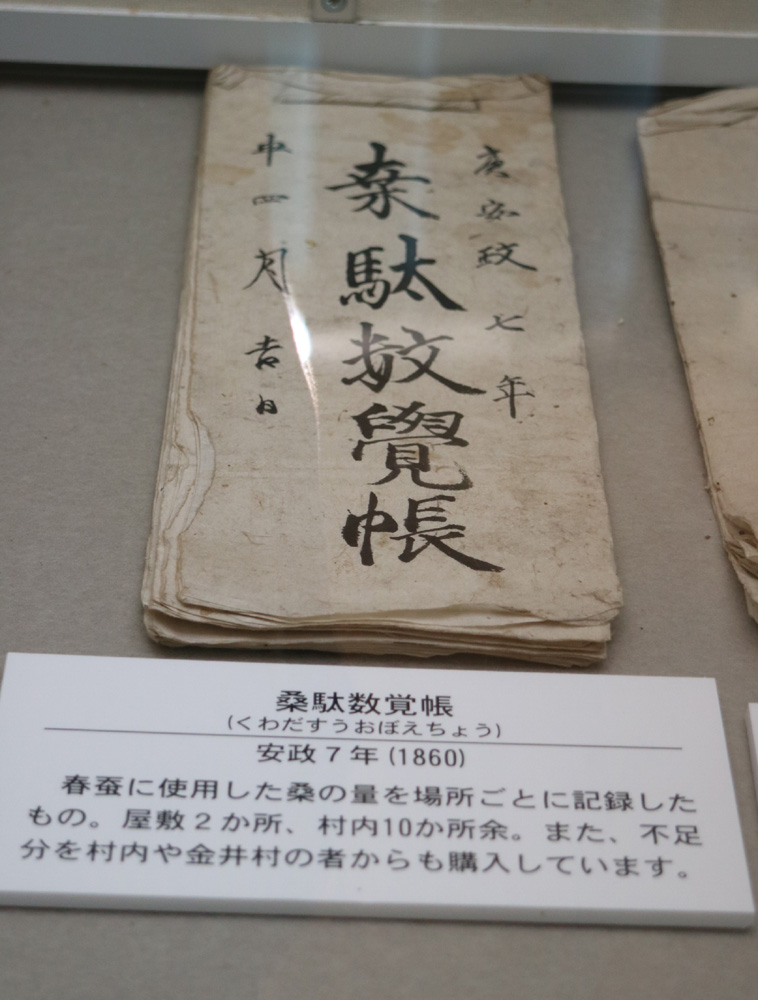 庚安政七年
桒駄数覺帳
申四月吉日
桑駄数覚帳
(くわだすうおぼえちょう)
安政7年(1860)
春蚕に使用した桑の量を場所ごとに記録した
もの。屋敷2か所、村内10か所余。また、不足
分を村内や金井村の者からも購入しています。